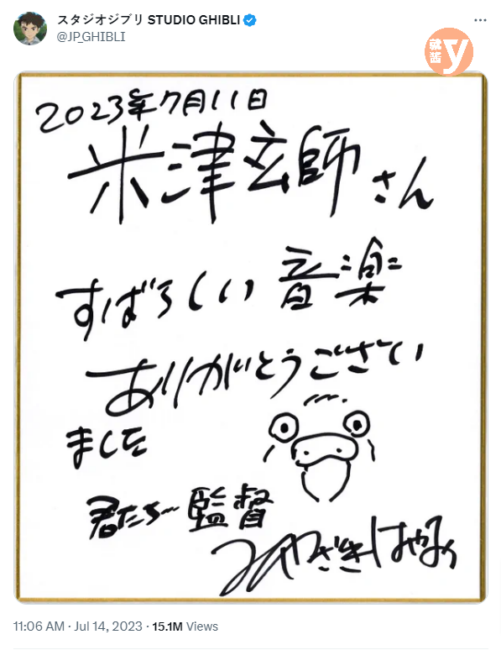 スタジオジブリ STUDIO GHIBLI
@JP_GHIBLI
就醬
y
2023年7月11日
米津玄師さん
すばらしい音楽
ありがとうござい
ました
君たち〜監督
みやざきはやお
11:06 AM · Jul 14, 2023 · 15.1M Views